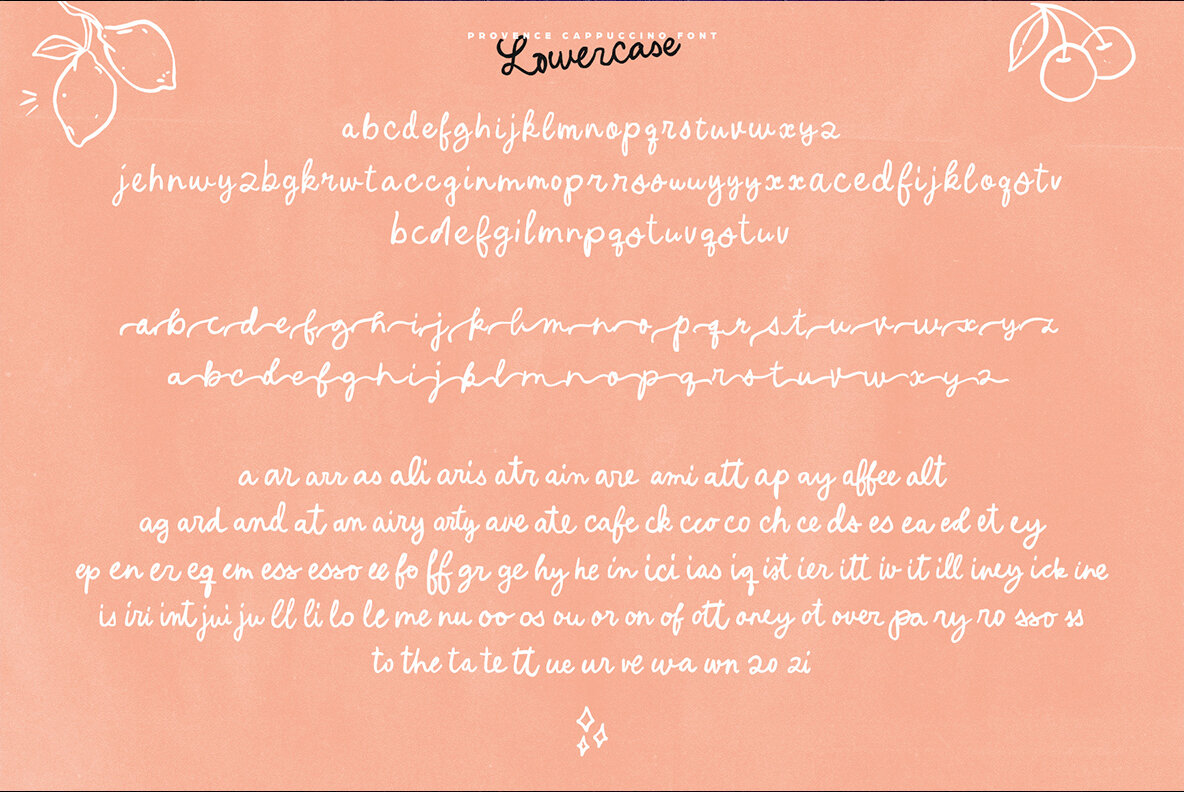 PROVENCE CAPPUCCINO FONT
Lowercase
abcdefghijklmnopqrstuvwxyz
jehnwyzbgkrwtaccginmmoprrssuuyyyxxacedfijkloqstv
bcdefgilmnpqstuvqstuv
abcdefghijklmnopqrstuvwxyz
abcdefghijklmnopqrstuvwxyz
a ar arr as ali aris atr ain are ami att ap ay affee alt
ag ard and at an airy arty ave ate cafe ck cco co ch ce ds es ea ed et ey
ep en er eq em ess esso ee fo ff gr ge hy he in ici ias iq ist ier itt iv it ill iney ick ine
is iri int jui ju ll li lo le me nu oo os ou or on of ott oney ot over pa ry ro sso ss
to the ta te tt ue ur ve wa wn zo zi